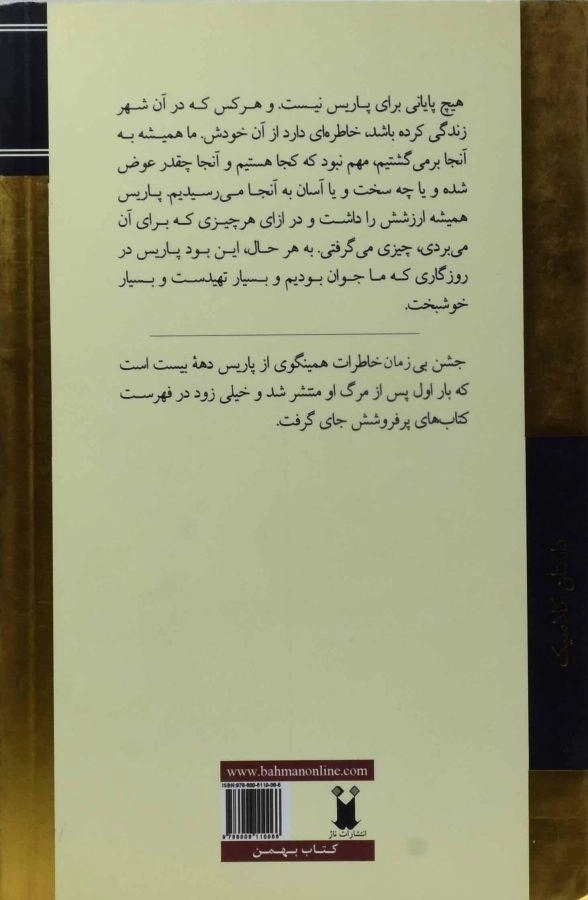 هیچ پایانی برای پاریس نیست. و هرکس که در آن شهر
زندگی کرده باشد، خاطره‌ای دارد از آن خودش. ما همیشه به
آنجا برمی‌گشتیم، مهم نبود که کجا هستیم و آنجا چقدر عوض
شده و یا چه سخت و یا آسان به آنجا می‌رسیدیم. پاریس
همیشه ارزشش را داشت و در ازای هرچیزی که برای آن
می‌بردی، چیزی می‌گرفتی. به هر حال، این بود پاریس در
روزگاری که ما جوان بودیم و بسیار تهیدست و بسیار
خوشبخت.
جشن بی‌زمان خاطرات همینگوی از پاریس دههٔ بیست است
که بار اول پس از مرگ او منتشر شد و خیلی زود در فهرست
کتاب‌های پرفروشش جای گرفت.
داستان کلاسیک
www.bahmanonline.com
ISBN:978-600-6110-06-6
9786006110066
انتشارات ناز
کتاب بهمن